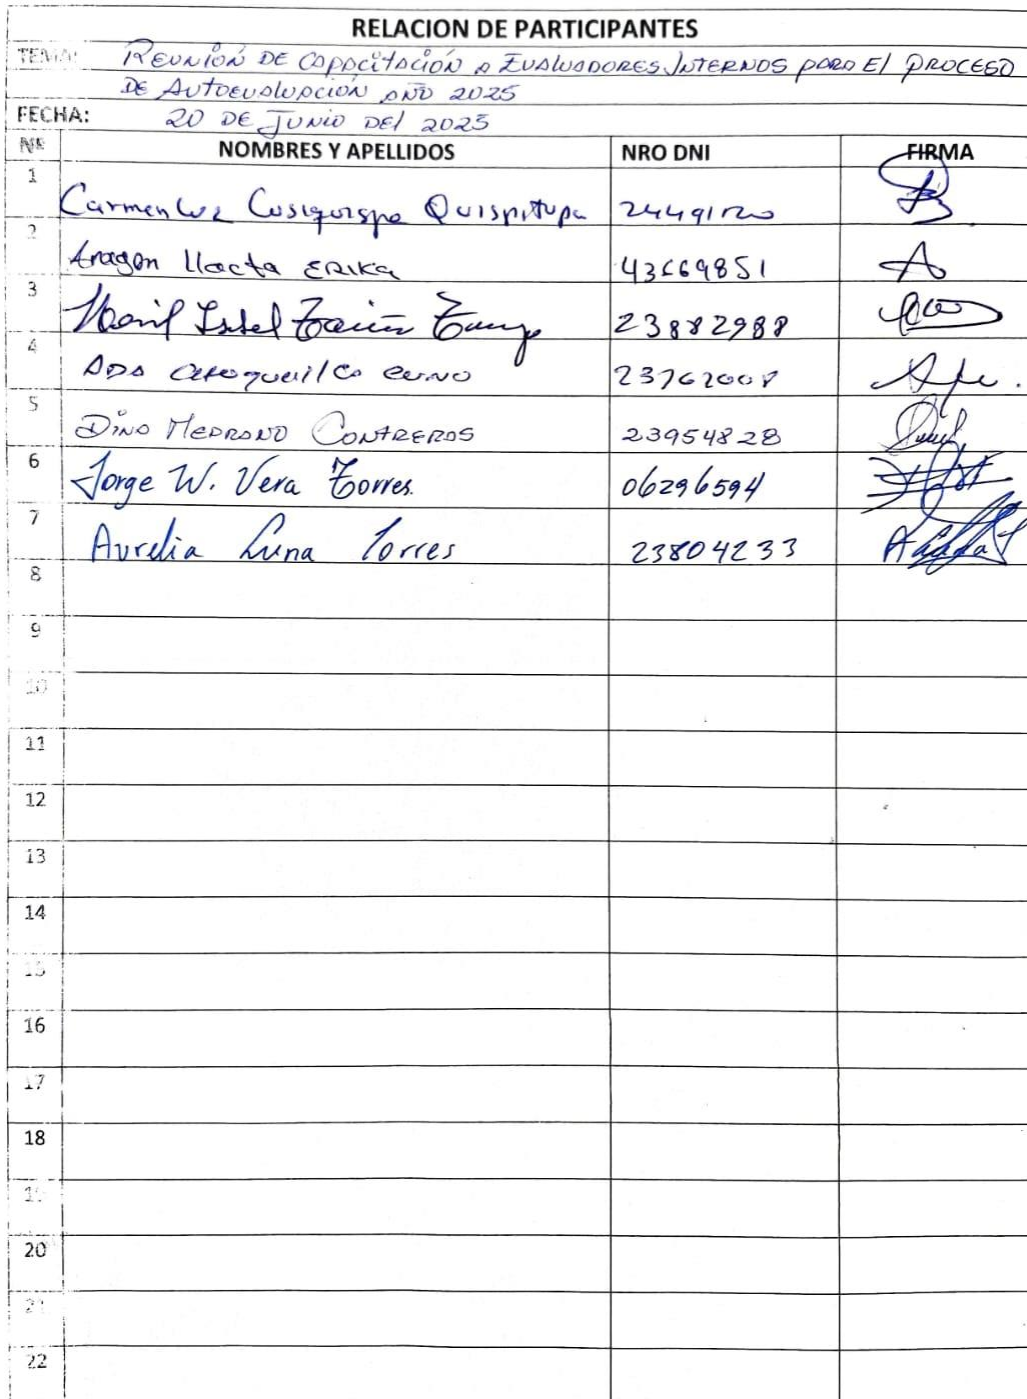 RELACION DE PARTICIPANTES
TEMA: REUNIÓN DE CAPACITACIÓN A EVALUADORES INTERNOS PARA El PROCESO
DE AUTOEVALUACIÓN AÑO 2025
FECHA: 20 DE JUNIO DEl 2025
Nº NOMBRES Y APELLIDOS NRO DNI FIRMA
1 Carmen Luz Cusiquispe Quispitupa 24491120
2 Aragon Llacta ERIKA 43669851
3 Isabel 23882988
4 ADA 23762008
5 DINO MEDRANO CONTRERAS 23954828
6 Jorge W. Vera Torres. 06296594
7 Aurelia Luna Torres 23804233
8
9
10
11
12
13
14
15
16
17
18
19
20
21
22